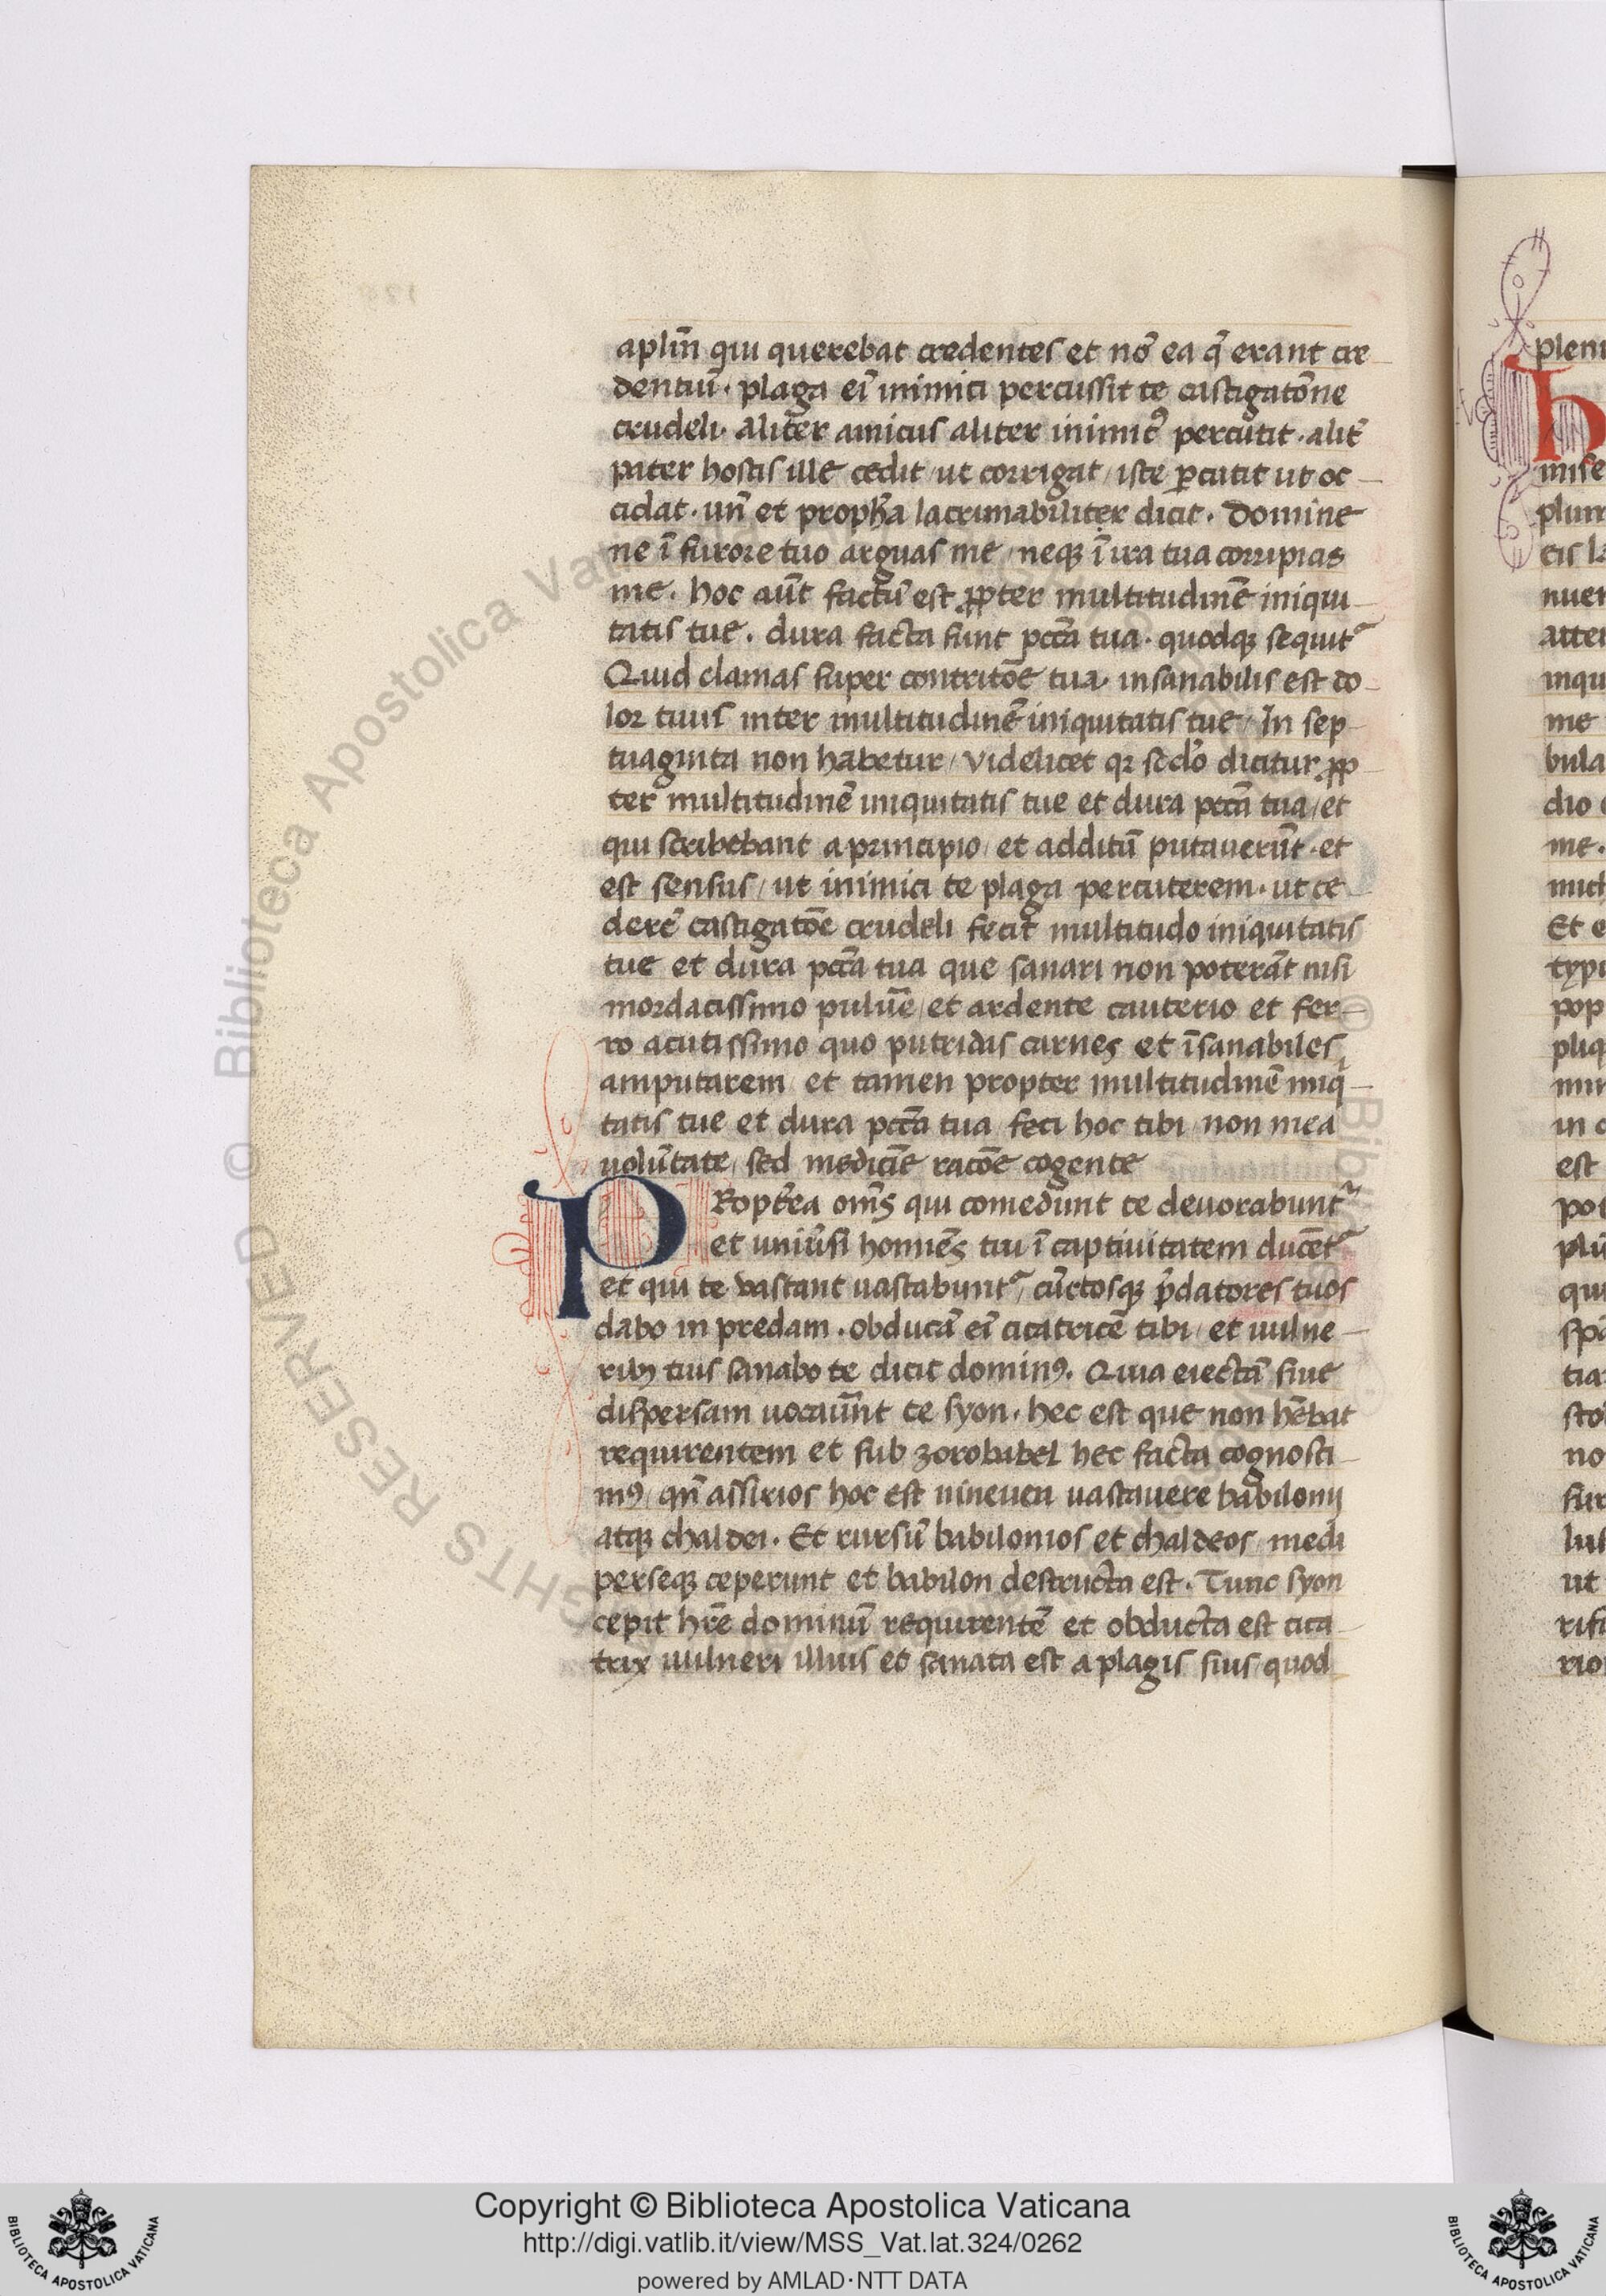 aplm̄ qui querebat credentes et nō ea q̄ erant cre
dentiū · plaga eī inimici percussit te castigatōne
crudeli · aliter amicus aliter inimicꝰ percutit · alit̄
pater hostis ille cedit / ut corrigat / iste ꝑcutit ut oc
cidat · un̄ et proph̄a lacrimabiliter dicit · Domine
ne ī furore tuo arguas me / neqꝫ ī ira tua corripias
me . hoc aūt factū est ꝓpter multitudinē iniqui
tatis tue . dura facta sunt pcc̄a tua · quodqꝫ sequit᷑
Quid clamas super contritōe tua · insanabilis est do
lor tuus inter multitudinē iniquitatis tue / In sep
tuaginta non habetur / videlicet qꝛ scd̄o dicitur ꝓp
ter multitudinē iniquitatis tue et dura pcc̄a tua / et
qui scribebant a principio / et additū putauerūt · et
est sensus / ut inimici te plaga percuterem · ut ce
derē castigatōe crudeli fecit multitudo iniquitatis
tue et dura pcc̄a tua que sanari non poterāt nisi
mordacissimo puluē / et ardente cauterio et fer
ro acutissimo quo putridas carnes et īsanabiles
amputarem / et tamen propter multitudinē iniqⁱ
tatis tue et dura pcc̄a tua / feci hoc tibi / non mea
uolūtate / sed medicīe racōe cogente
PRopt̄ea om̄s qui comedunt te deuorabunt᷑
et uniūsi hostes tui ī captiuitatem ducēt᷑
et qui te vastant uastabunt᷑ / cūctosqꝫ p̄datores tuos
dabo in predam · obducā eī cicatricē tibi / et uulne
ribꝫ tuis sanabo te dicit dominꝰ . Quia eiectā siue
dispersam uocaūnt te syon · hec est que non hēbat
requirentem et sub zorobabel hec facta cognosci
mꝰ / qn̄ assirios hoc est nineuen uastauere babilonij
atqꝫ chaldei · Et rursū babilonios et chaldeos / medi
perseqꝫ ceperunt et babilon destructa est · Tunc syon
cepit hr̄e dominū requirentē et obducta est cica
trix uulneri illius et sanata est a plagis suis / quod
Copyright © Biblioteca Apostolica Vaticana
http://digi.vatlib.it/view/MSS_Vat.lat.324/0262
powered by AMLAD·NTT DATA